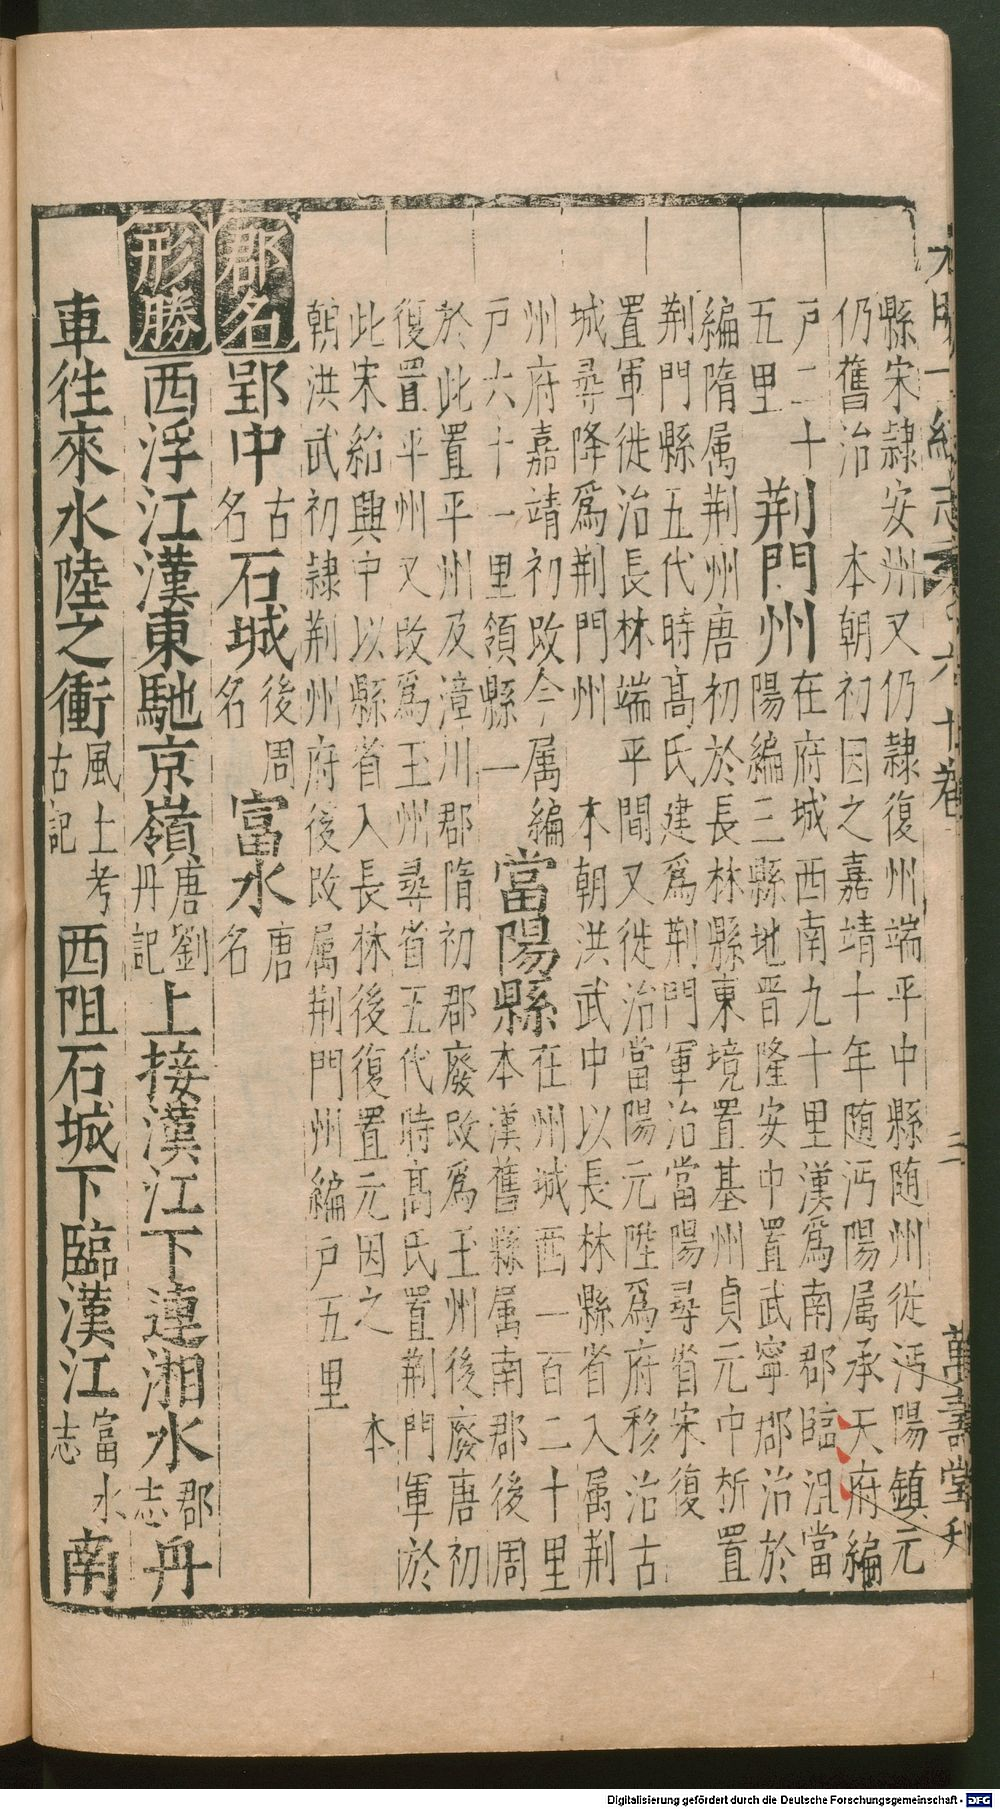 大明一統志卷之六十 卷 三 萬壽堂刊
縣宋隷安州又仍隷復州端平中縣随州從沔陽鎮元
仍舊治　本朝初因之嘉靖十年随沔陽属承天府編
戸二十
五里
荆門州
在府城西南九十里漢爲南郡臨沮當
陽編三縣地晋隆安中置武寧郡治於
編隋属荆州唐初於長林縣東境置基州貞元中析置
荆門縣五代時髙氏建爲荆門軍治當陽尋省宋復
置軍徙治長林端平間又徙治當陽元陞爲府移治古
城尋降爲荆門州　本朝洪武中以長林縣省入属荆
州府嘉靖初改今属編
戸六十一里領縣一
當陽縣
在州城西一百二十里
本漢舊縣属南郡後周
於此置平州及漳川郡隋初郡廢改爲玉州後廢唐初
復置平州又改爲玉州尋省五代時髙氏置荆門軍於
此宋紹興中以縣省入長林後復置元因之　本
朝洪武初隷荆州府後改属荆門州編戸五里
郡名　郢中古名　石城後周名　富水唐名
形勝　西浮江漢東馳京嶺唐劉丹記　上接漢江下連湘水郡志　丹
車往來水陸之衝風土考古記　西阻石城下臨漢江富水志　南
Digitalisierung gefördert durch die Deutsche Forschungsgemeinschaft - DFG